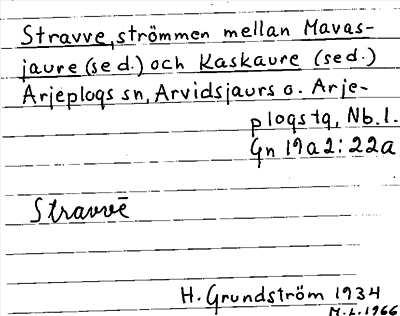 Stravve, strömmen mellan Mavas-
jaure (sed.) och Kaskaure (sed.)
Arjeplogs sn, Arvidsjaurs o. Arje-
plogs tg, Nb. l.
Gn 19a2: 22a
Stravvē
H. Grundström 1934
M.L. 1966